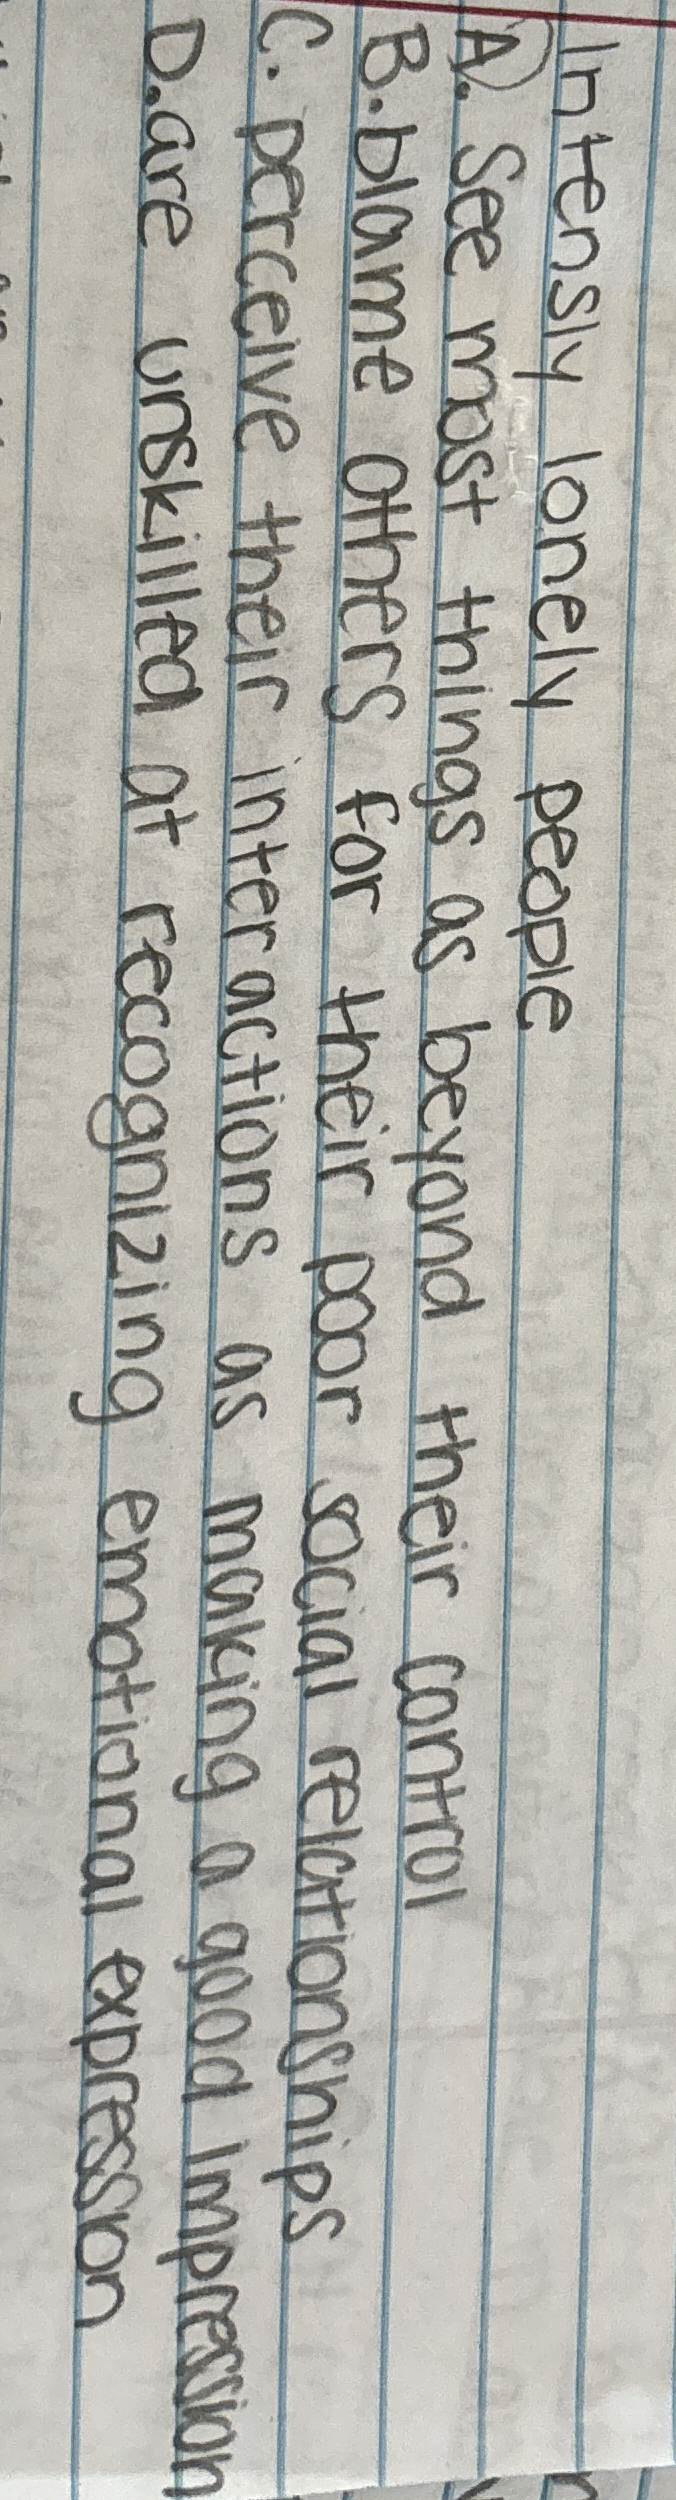 Intensly lonely people
A. See most things as beyond their control
B. blame others for their poor social relationships
C. perceive their interactions as making a good impression
D. are unskilled at recognizing emotional expression